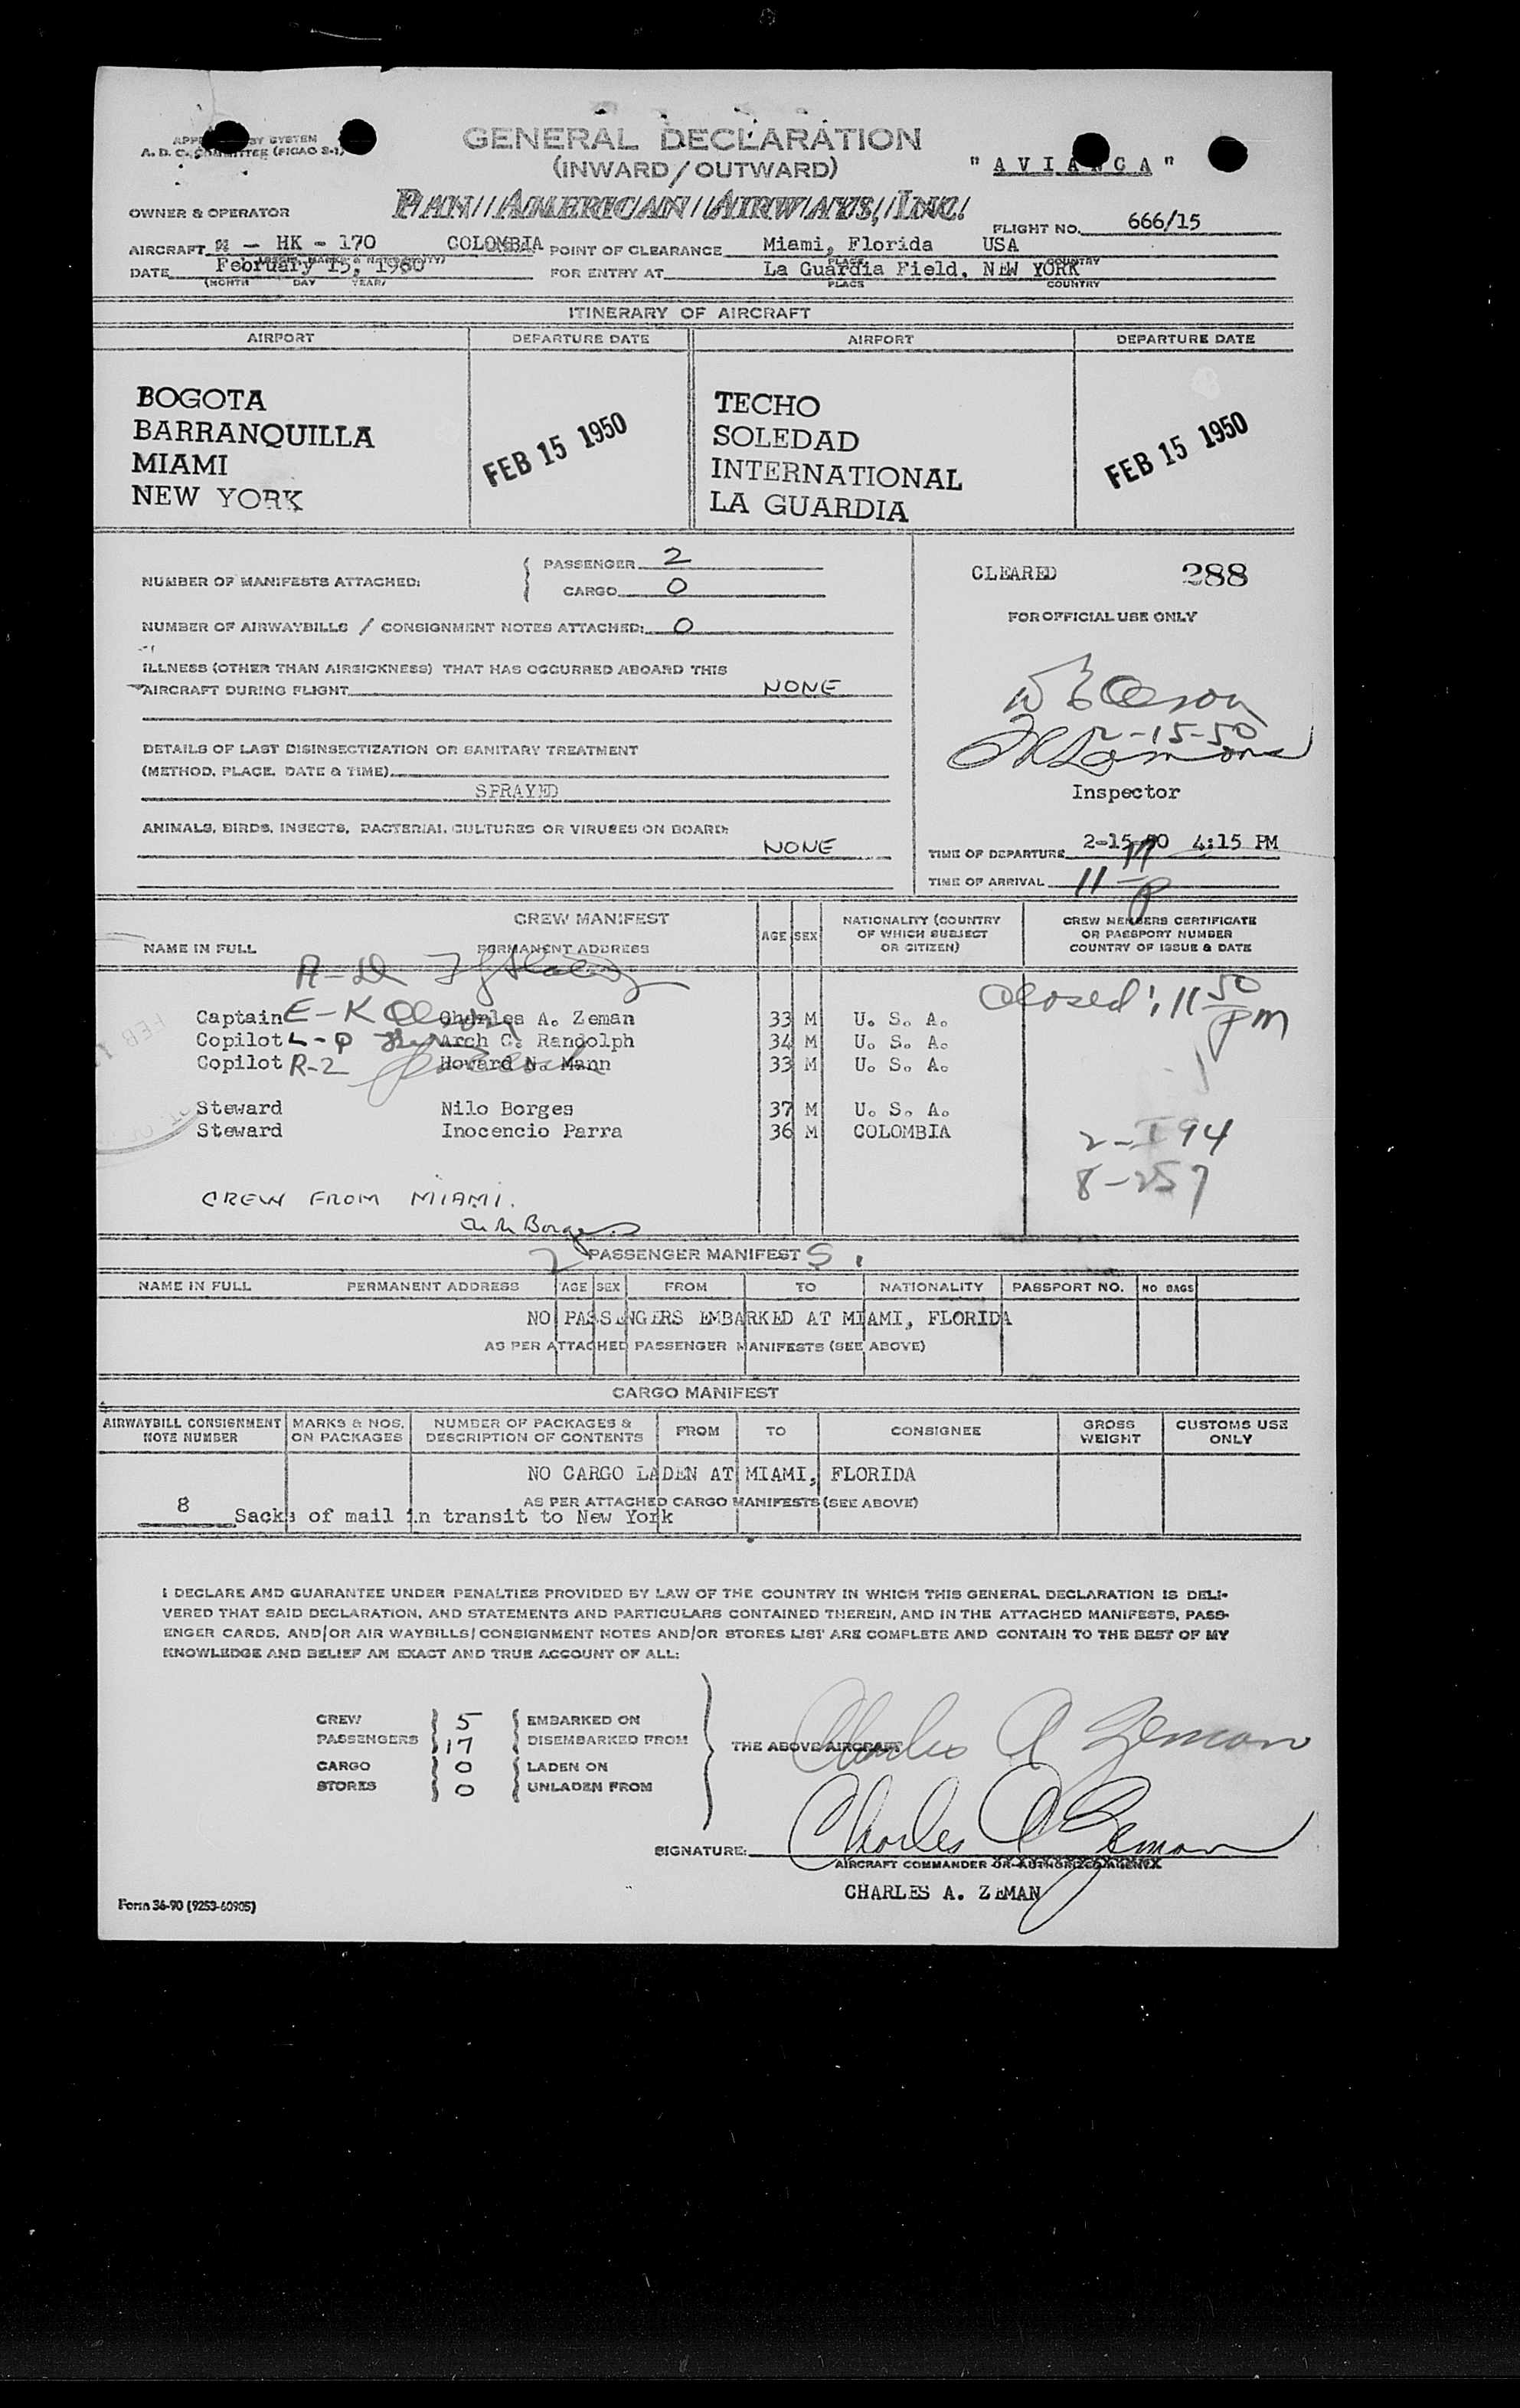 GENERAL DECLARATION
(INWARD/OUTWARD)
A. D. C. COMMITTEE (FICAO S-1)
" AVIANCA "
PAN AMERICAN AIRWAYS, INC.
OWNER & OPERATOR
FLIGHT NO. 666/15
AIRCRAFT - HK - 170 COLOMBIA POINT OF CLEARANCE Miami, Florida USA
PLACE COUNTRY
DATE February 15, 1950 FOR ENTRY AT La Guardia Field, NEW YORK
(MONTH DAY YEAR) PLACE COUNTRY
ITINERARY OF AIRCRAFT
AIRPORT DEPARTURE DATE AIRPORT DEPARTURE DATE
BOGOTA TECHO
BARRANQUILLA FEB 15 1950 SOLEDAD FEB 15 1950
MIAMI INTERNATIONAL
NEW YORK LA GUARDIA
NUMBER OF MANIFESTS ATTACHED: PASSENGER 2
CARGO 0
NUMBER OF AIRWAYBILLS / CONSIGNMENT NOTES ATTACHED: 0
ILLNESS (OTHER THAN AIRSICKNESS) THAT HAS OCCURRED ABOARD THIS
AIRCRAFT DURING FLIGHT NONE
DETAILS OF LAST DISINSECTIZATION OR SANITARY TREATMENT
(METHOD, PLACE, DATE & TIME)
SPRAYED
ANIMALS, BIRDS, INSECTS, BACTERIAL CULTURES OR VIRUSES ON BOARD:
NONE
CLEARED 288
FOR OFFICIAL USE ONLY
2-15-50
Inspector
TIME OF DEPARTURE 2-15-50 4:15 PM
TIME OF ARRIVAL 11 17 P
CREW MANIFEST
NAME IN FULL PERMANENT ADDRESS AGE SEX NATIONALITY (COUNTRY OF WHICH SUBJECT OR CITIZEN) CREW MEMBERS CERTIFICATE OR PASSPORT NUMBER COUNTRY OF ISSUE & DATE
A-D
Closed: 11 50 pm
Captain E-K Charles A. Zeman 33 M U. S. A.
Copilot L-Q Arch C. Randolph 34 M U. S. A.
Copilot R-Z Howard N. Mann 33 M U. S. A.
Steward Nilo Borges 37 M U. S. A.
Steward Inocencio Parra 36 M COLOMBIA
2-I 94
8-257
CREW FROM MIAMI.
2 PASSENGER MANIFEST S.
NAME IN FULL PERMANENT ADDRESS AGE SEX FROM TO NATIONALITY PASSPORT NO. NO BAGS
NO PASSENGERS EMBARKED AT MIAMI, FLORIDA
AS PER ATTACHED PASSENGER MANIFESTS (SEE ABOVE)
CARGO MANIFEST
AIRWAYBILL CONSIGNMENT NOTE NUMBER MARKS & NOS. ON PACKAGES NUMBER OF PACKAGES & DESCRIPTION OF CONTENTS FROM TO CONSIGNEE GROSS WEIGHT CUSTOMS USE ONLY
NO CARGO LADEN AT MIAMI, FLORIDA
AS PER ATTACHED CARGO MANIFESTS (SEE ABOVE)
8 Sacks of mail in transit to New York
I DECLARE AND GUARANTEE UNDER PENALTIES PROVIDED BY LAW OF THE COUNTRY IN WHICH THIS GENERAL DECLARATION IS DELI-
VERED THAT SAID DECLARATION, AND STATEMENTS AND PARTICULARS CONTAINED THEREIN, AND IN THE ATTACHED MANIFESTS, PASS-
ENGER CARDS, AND/OR AIR WAYBILLS/CONSIGNMENT NOTES AND/OR STORES LIST ARE COMPLETE AND CONTAIN TO THE BEST OF MY
KNOWLEDGE AND BELIEF AN EXACT AND TRUE ACCOUNT OF ALL:
CREW 5 EMBARKED ON
PASSENGERS 17 DISEMBARKED FROM
CARGO 0 LADEN ON
STORES 0 UNLADEN FROM
THE ABOVE AIRCRAFT
Charles A Zeman
SIGNATURE: Charles A Zeman
AIRCRAFT COMMANDER OR AUTHORIZED AGENT
CHARLES A. ZEMAN
Form 36-90 (9253-60905)